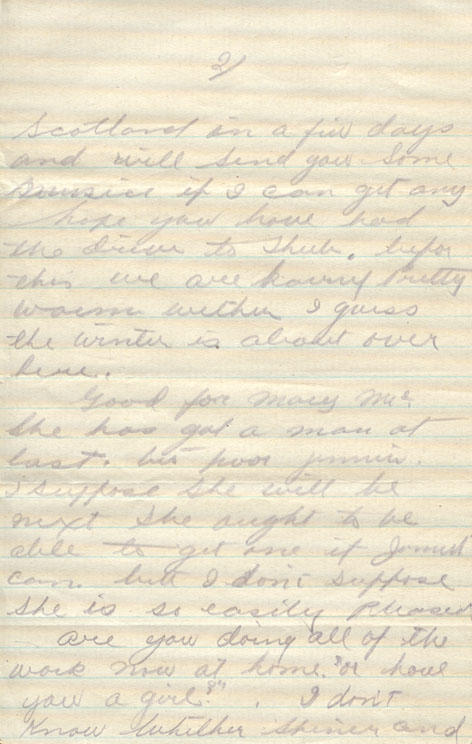 2/
Scotland in a fiw days
and will send you some
if I can get any
hope you have had
the drive to Shub. befor
this we are having Pretty
warm wether I guess
the winter is about over
here.
Good for Mary Mc.
She has got a man at
last. but poor
I suppose she will be
next She aught to be
able to get one if
can. but I don't suppose
she is so easily Pleased
are you doing all of the
work now at home. "or have
you a girl?" . I don't
Know Whither and